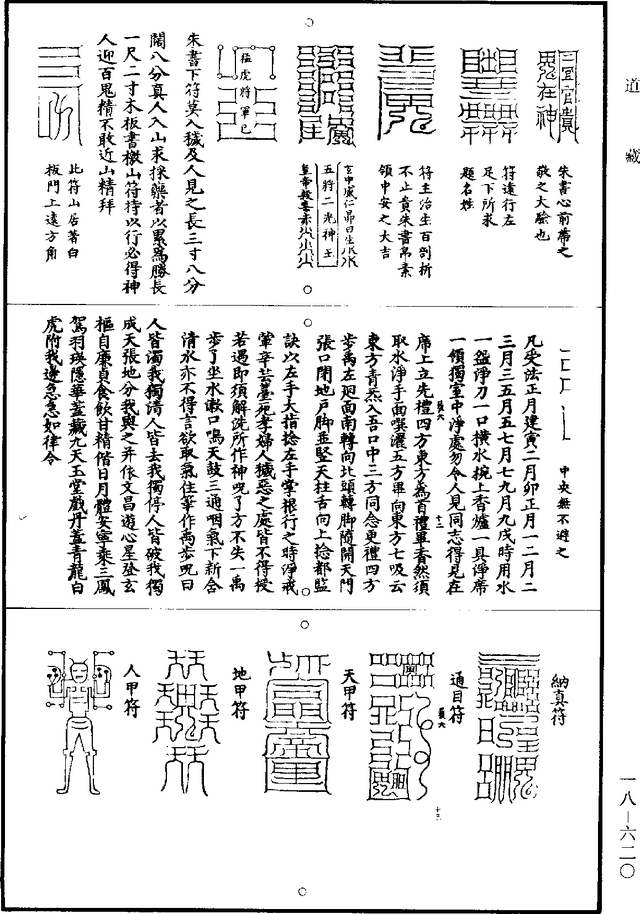 道藏
朱書心前帶之
敬之大驗也
符違行左
足下所求
題名姓
符主治生百剖折
不止貴朱書帛素
領中安之大吉
五將二光神王
猛虎將軍已
朱書下符莫入穢及人見之長三寸八分
闊八分真人入山求採藥者以累為勝長
一尺二寸木板書檄山符持以行必得神
人迎百鬼精不敢近山精拜
此符山居著白
板門上遠方角
中央無不避之
凡受法正月建寅二月卯正月一二月二
三月三五月五七月七九月九戌時用水
一盌淨刀一口橫水椀上香爐一具淨席
一領獨室中淨處勿令人見同志得見在
席上立先禮四方東方為首禮畢香然須
取水淨手面噀灑五方畢向東方七吸云
東方青然入吾口中三方同念更禮四方
步禹左迴面南轉向北頭轉脚隨開天門
張口閉地戶脚並堅天柱舌向上捻都監
訣以左手大指捻左手掌根行之時淨戒
葷辛芸薹死孝婦人穢惡之處皆不得授
若遇即須解洗所作神呪了方不失一禹
步了坐水漱口鳴天鼓三通咽氣下新舍
清水亦不得言欲取氣住筆作禹步呪曰
人皆濁我獨清人皆去我獨停人皆破我獨
成天張地分我與之并依文昌遊心星登玄
樞自廉貞食飲甘精偕日月體安寧乘三鳳
駕羽瑛隱華蓋藏九天玉堂戲丹蓋青龍白
虎附我邊急急如律令
納真符
通目符
天甲符
地甲符
人甲符
一八—六二〇